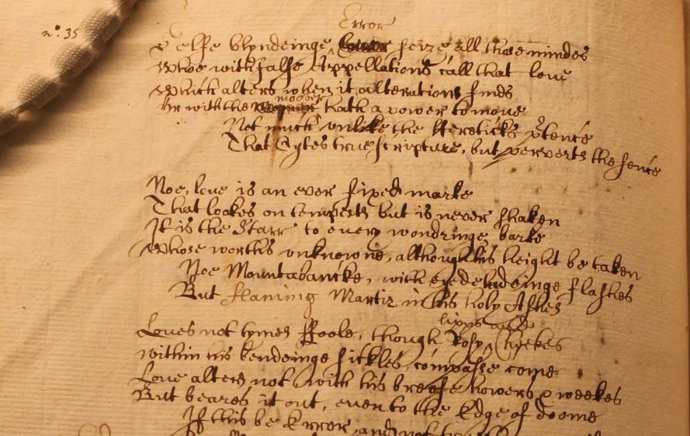 Error
n°. 35
Selfe blyndeinge seize all those mindes
Whoe with false Appellations call that love
Which alters when it alterations finds
mover
Or with the hath a power to move
Not much unlike the Hereticks ptence
That Cytes true Scripture, but perverts the sence
Noe, love is an ever fixed marke
That lookes on tempests but is never shaken
It is the Starr to every wandringe barke
Whose worth's unknowne, although his height be taken
Noe Mountabancke, with eyedeludeinge flashes
But flaming Martir in his holy Ashes
lipps and
Loves not tymes Foole, though Rosy Cheekes
Within his bendeinge sickles, compasse come
Love alters not with his breefe howers & weekes
But beares it out, even to the Edge of doome
If this be Error and not